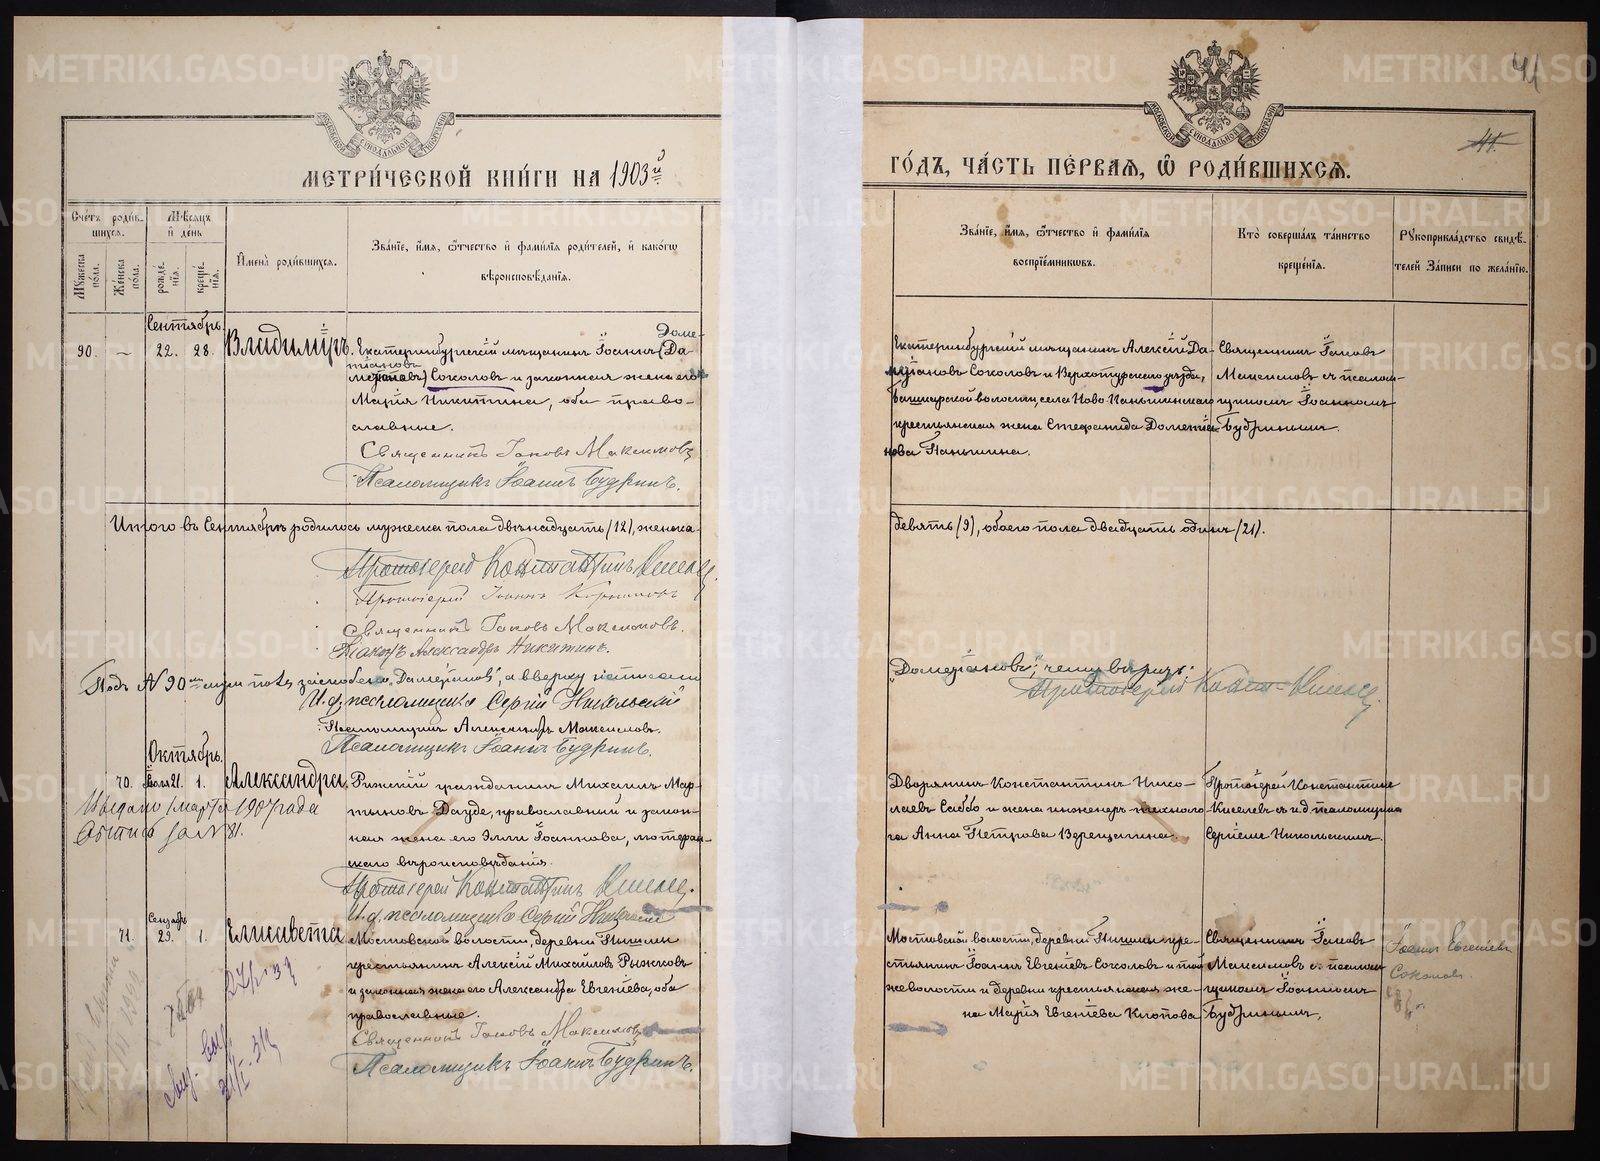 41
41.
МОСКОВСКОЙ СѴНОДАЛЬНОЙ ТИПОГРАФІИ
МОСКОВСКОЙ СѴНОДАЛЬНОЙ ТИПОГРАФІИ
МЕТРИ́ЧЕСКОЙ КНИ́ГИ НА 1903й
ГО́ДЪ, ЧА́СТЬ ПЕ́РВАЯ, Ѡ҆ РОДИ́ВШИХСЯ.
Сче́тъ роди́в-
шихся.
Мѣ́сяцъ
и҆ де́нь
Му́жеска
по́ла.
Же́нска
по́ла.
рожде́-
нїя.
креще́-
нїя.
И҆мена̀ роди́вшихся.
Зва́нїе, и҆́мя, ѻ҆́тчество и҆ фами́лїя роди́телей, и҆ како́гѡ
вѣроисповѣ́данїя.
Зва́нїе, и҆́мя, ѻ҆́тчество и҆ фами́лїя
воспрїе́мникѡвъ.
Кто̀ соверша́лъ та́инство
креще́нїя.
Рꙋкоприкла́дство свидѣ́-
телей за́писи по жела́нїю.
Сентябрь.
90. – 22. 28. Владиміръ.
Доме-
Екатеринбургскій мѣщанинъ Іоаннъ (Да-
тіановъ
Соколовъ и законная жена его
Марія Никитина, оба право-
славные.
Священникъ Іаковъ Максимовъ
Псаломщикъ Іоаннъ Будринъ.
Екатеринбургскій мѣщанинъ Алексій Да-
Соколовъ и Верхотурскаго уѣзда,
волости, села Ново-Паньшинскаго
крестьянская жена Стефанида Дометіа-
нова Паньшина.
Священникъ Іаковъ
Максимовъ съ псалом-
щикомъ Іоанномъ
Будринымъ.
Итого въ Сентябрѣ родилось мужеска пола двѣнадцать (12), женска
девять (9), обоего пола двадцать одинъ (21).
Протоіерей Константинъ
Протоіерей Іоаннъ
Священникъ Іаковъ Максимовъ.
Діаконъ Александръ Никитинъ.
Подъ N 90
И. д. псаломщика Сергій Никольскій
Псаломщикъ Александръ Максимовъ.
Псаломщикъ Іоаннъ Будринъ.
Протоіерей
Октябрь.
70. Іюля 21. 1. Александра.
Рижскій гражданинъ Михаилъ Мар-
тыновъ Дауде, православный и закон-
ная жена его Элли Іоаннова, лютеран-
скаго вѣроисповѣданія.
Протоіерей Константинъ
И. д. псаломщика Сергій Никольскій
1 марта 1907 года
81.
Дворянинъ Константинъ Нико-
лаевъ и жена инженеръ-техноло-
га Анна Петрова Верещагина.
Протоіерей Константинъ
Киселевъ съ и. д. псаломщика
Сергіемъ Никольскимъ.
Сентябр.
71. 29. 1. Елисавета
Мостовской волости, деревни Пышмы
крестьянинъ Алексій Михайловъ Рыжковъ
и законная жена его Александра Евгеніева, оба
православные.
Священникъ Іаковъ Максимовъ
Псаломщикъ Іоаннъ Будринъ.
Мостовской волости, деревни Пышмы кре-
стьянинъ Іоаннъ Евгеніевъ Соколовъ и той
же волости и деревни крестьянская же-
на Марія Евгеніева Клопова
Священникъ Іаковъ
Максимовъ съ псалом-
щикомъ Іоанномъ
Будринымъ.
Іоаннъ Евгеніевъ
Соколовъ.
METRIKI.GASO-URAL.RU